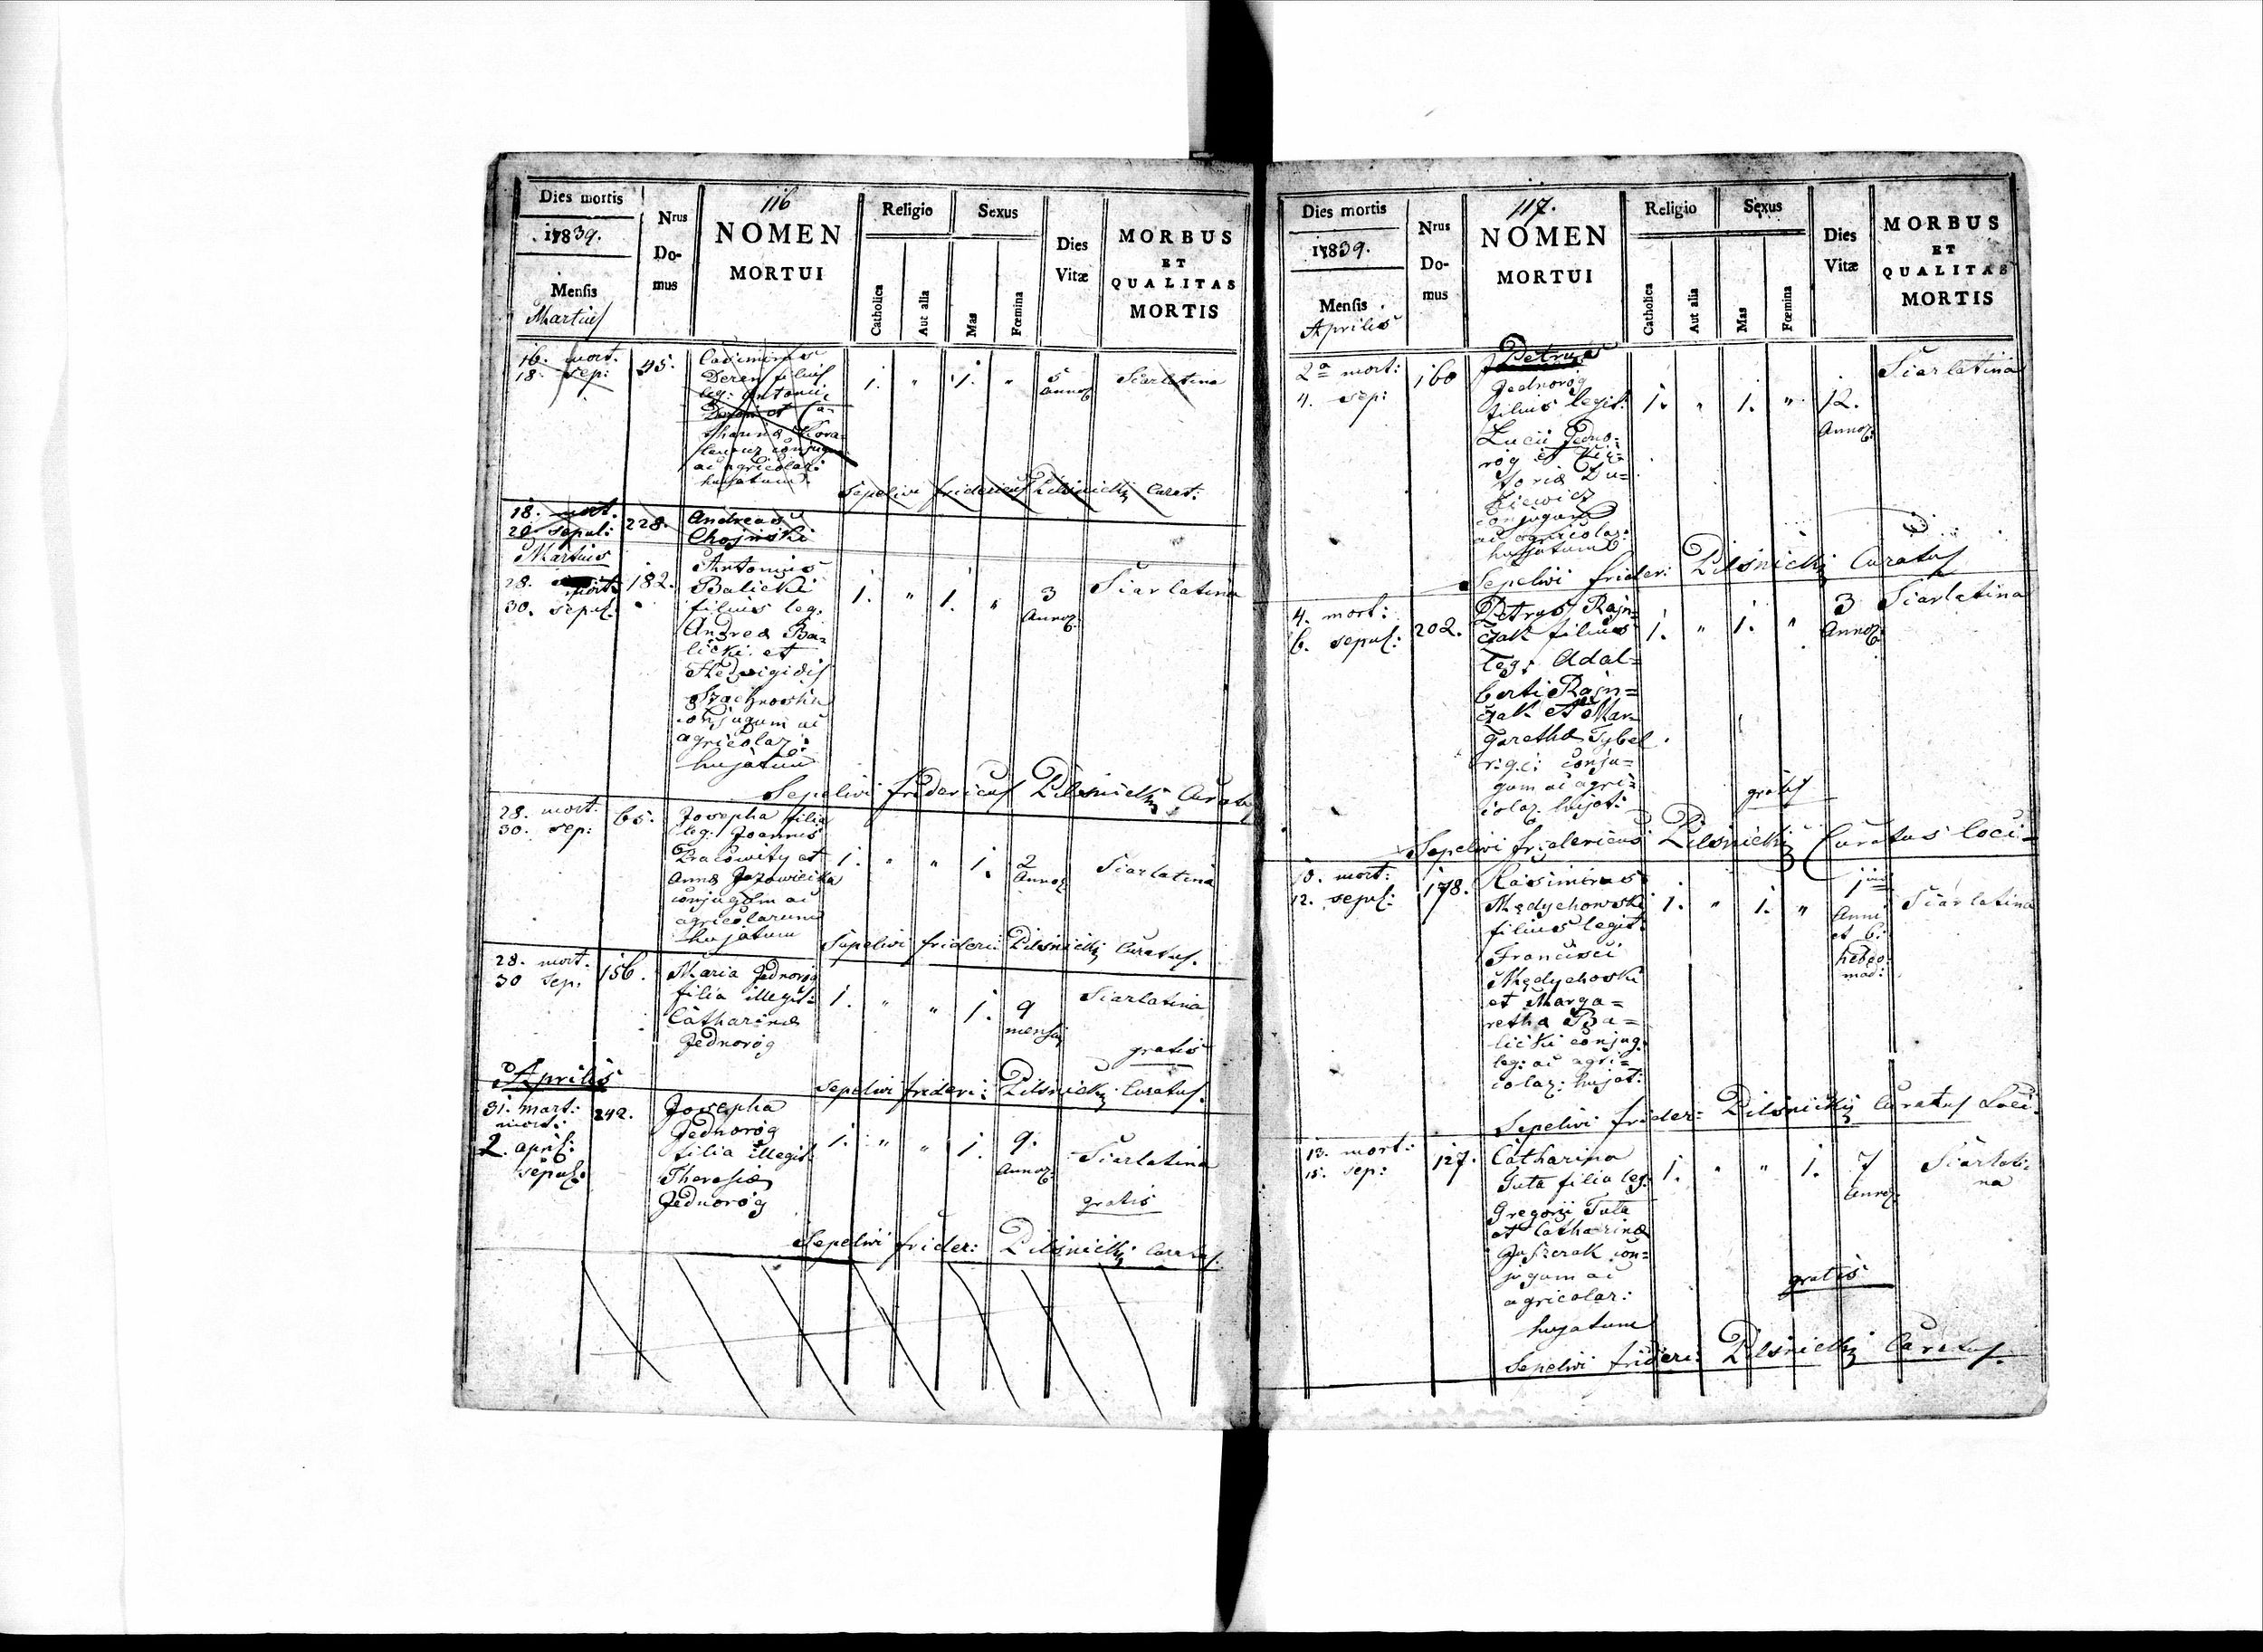 116
Dies mortis
1839.
Mensis
Martius
Nrus
Do-
mus
NOMEN
MORTUI
Religio
Catholica
Aut alia
Sexus
Mas
Fœmina
Dies
Vitæ
MORBUS
ET
QUALITAS
MORTIS
16. mort.
18. sep:
45.
Casimirus
Deren filius
leg: Antonii
Deren et Ca-
tharina
conjugum
ac agricolar:
hujatum.
1. " 1. "
5
Annor
Scarlatina
Sepelivi fridericus Pilsnicki Curat:
18. mort.
20 sepul:
228.
Andreas
Chojnski
Martius
28. mort:
30. sepul:
182.
Antonius
Balicki
filius leg.
Andrea Ba=
licki et
Hedvigidis
conjugum ac
agricolar:
hujatum
1. " 1. "
3
Annor.
Scarlatina
Sepelivi fridericus Pilsnicki Curatus
28. mort.
30. sep:
65.
Josepha filia
leg: Joannis
Pracowity et
Anna Jazowiecka
conjugum ac
agricolarum
hujatum
1. " " 1.
2
Annor
Scarlatina
Sepelivi frideri: Pilsnicki Curatus.
28. mort.
30 sep.
156.
Maria Jednoróg
filia illegit:
Catharina
Jednoróg
1. " " 1.
9
mensiu
Scarlatina
gratis
Sepelivi frideri: Pilsnicki Curatus.
Aprilis
31. mart:
mort:
2. april:
sepul:
242.
Josepha
Jednoróg
filia illegit
Theresia
Jednoróg
1. " " 1.
9.
Annor.
Scarlatina
gratis
Sepelivi frider: Pilsnicki Curatus.
117.
Dies mortis
1839.
Mensis
Aprilis
Nrus
Do-
mus
NOMEN
MORTUI
Religio
Catholica
Aut alia
Sexus
Mas
Fœmina
Dies
Vitæ
MORBUS
ET
QUALITAS
MORTIS
2a mort:
4. sep:
160
Petrus
Jednoróg
filius legit:
Lucii Jedno:
róg et Vic=
toria Du=
kiewicz
conjugum
ac agricolar:
hujatum
1. " 1. "
12.
Annor:
Scarlatina
Sepelivi frider: Pilsnicki Curatus
4. mort:
6. sepul:
202.
Petrus Rajn=
czak filius
leg: Adal=
berti Rajn=
czak et Mar=
garetha Tybel
r: g: c: conju=
gum ac agri=
colar. hujat:
1. " 1. "
3
Annor:
Scarlatina
gratis
Sepelivi fridericus Pilsnicki Curatus loci=
10. mort:
12. sepul:
178.
Kasimirus
Mędychowski
filius legit:
Francisci
Mędychoski
et Marga=
retha Ba=
licki conjug.
leg: ac agri=
colar: hujat:
1. " 1. "
Anni
et 6.
hebdo
mad:
Scarlatina
Sepelivi frider= Pilsnicki Curatus Loci.
13. mort:
15. sep:
127.
Catharina
Tuta filia leg:
Gregorii Tuta
et Catharina
con=
jugum ac
agricolar:
hujatum
1. " " 1.
7
Annor.
Scarlati=
na
gratis
Sepelivi frideri: Pilsnicki Curatus.